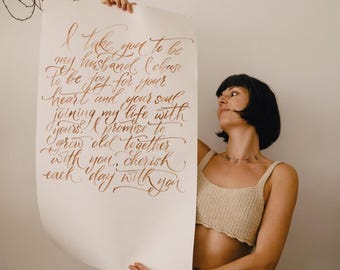 I take you to be
my husband. I choose
to be joy for your
heart and your soul
joining my life with
yours. I promise to
grow old together
with you, cherish
each day with you